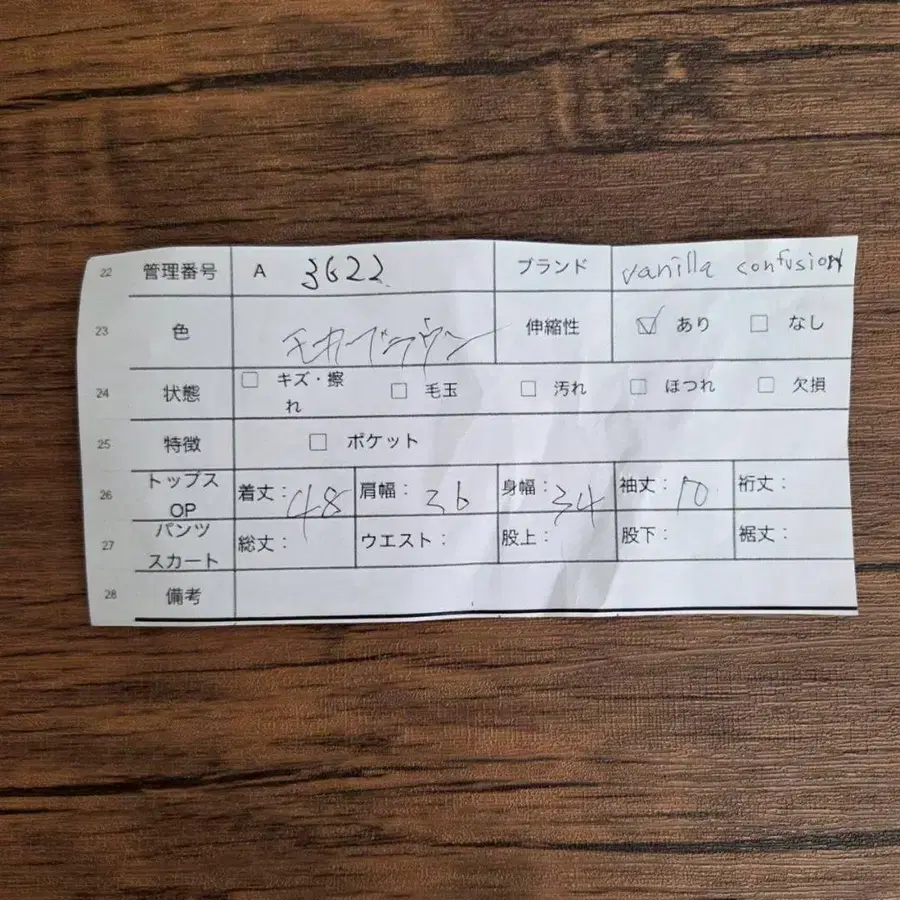 22 管理番号 A 3622 ブランド vanilla confusion
23 色 モカブラウン 伸縮性 ☑ あり ☐ なし
24 状態 ☐ キズ・擦れ ☐ 毛玉 ☐ 汚れ ☐ ほつれ ☐ 欠損
25 特徴 ☐ ポケット
26 トップス OP 着丈：48 肩幅：36 身幅：34 袖丈：10 裄丈：
27 パンツ スカート 総丈： ウエスト： 股上： 股下： 裾丈：
28 備考